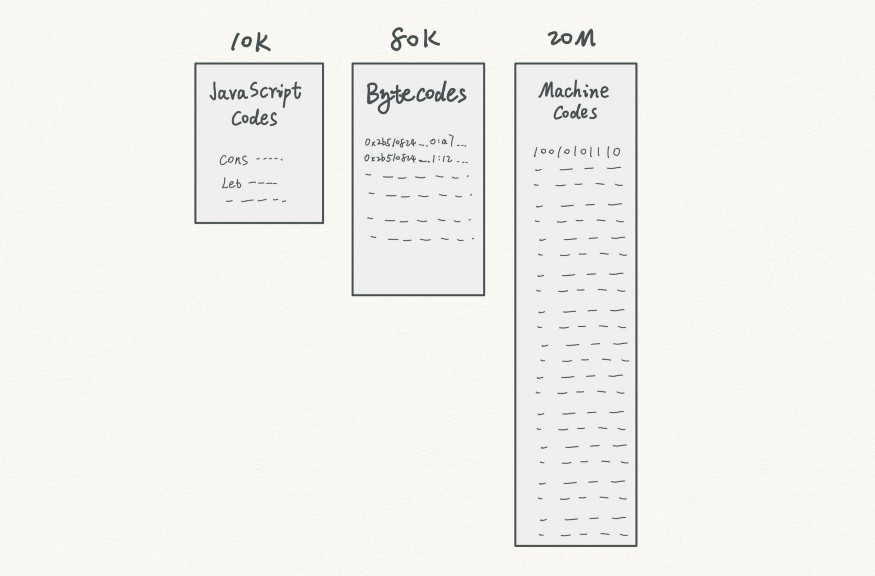 10K
JavaScript
Codes
Cons -----
Let ----
80K
Bytecodes
0x2b510824...0:a7...
0x2b510824...1:12...
20M
Machine
Codes
1001010110